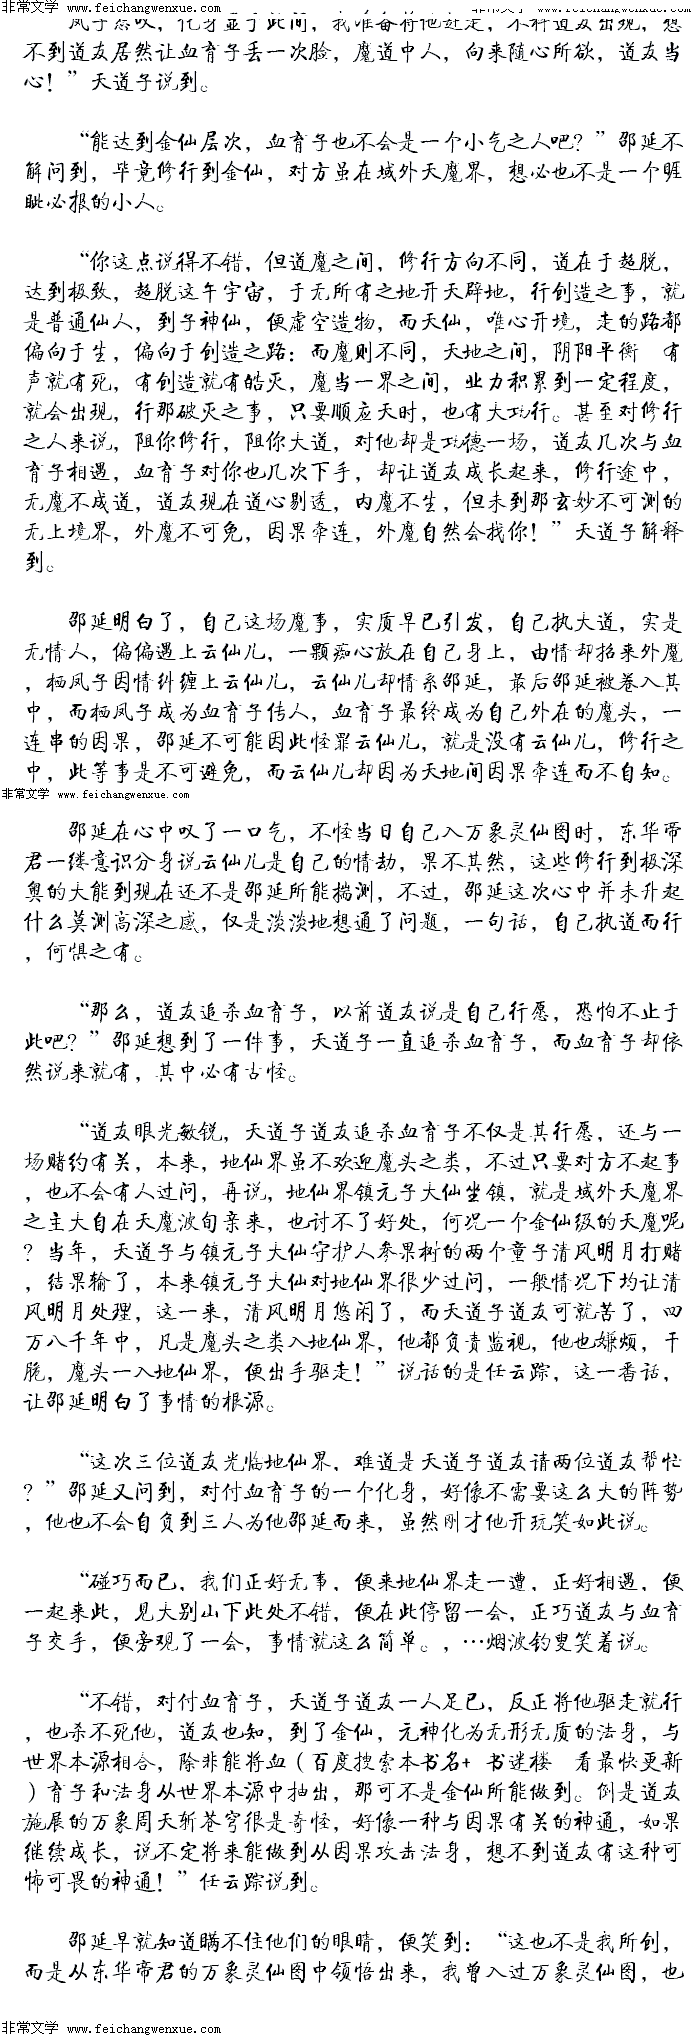 非常文学 www.feichangwenxue.com 非常文学 www.feichangwenxue.com
凤子怨叹，化身显于此间，我准备将他赶走，不料道友出现，想
不到道友居然让血育子丢一次脸，魔道中人，向来随心所欲，道友当
心！”天道子说到。
“能达到金仙层次，血育子也不会是一个小气之人吧？”邵延不
解问到，毕竟修行到金仙，对方虽在域外天魔界，想必也不是一个睚
眦必报的小人。
“你这点说得不错，但道魔之间，修行方向不同，道在于超脱，
达到极致，超脱这午宇宙，于无所有之地开天辟地，行创造之事，就
是普通仙人，到子神仙，便虚空造物，而天仙，唯心开境，走的路都
偏向于生，偏向于创造之路：而魔则不同，天地之间，阴阳平衡 有
声就有死，有创造就有皓灭，魔当一界之间，业力积累到一定程度，
就会出现，行那破灭之事，只要顺应天时，也有大功行。甚至对修行
之人来说，阻你修行，阻你大道，对他却是功德一场，道友几次与血
育子相遇，血育子对你也几次下手，却让道友成长起来，修行途中，
无魔不成道，道友现在道心剔透，内魔不生，但未到那玄妙不可测的
无上境界，外魔不可免，因果牵连，外魔自然会找你！”天道子解释
到。
邵延明白了，自己这场魔事，实质早已引发，自己执大道，实是
无情人，偏偏遇上云仙儿，一颗痴心放在自己身上，由情却招来外魔
，栖凤子因情纠缠上云仙儿，云仙儿却情系邵延，最后邵延被卷入其
中，而栖凤子成为血育子传人，血育子最终成为自己外在的魔头，一
连串的因果，邵延不可能因此怪罪云仙儿，就是没有云仙儿，修行之
中，此等事是不可避免，而云仙儿却因为天地间因果牵连而不自知。
非常文学 www.feichangwenxue.com
邵延在心中叹了一口气，不怪当日自己入万象灵仙图时，东华帝
君一缕意识分身说云仙儿是自己的情劫，果不其然，这些修行到极深
奥的大能到现在还不是邵延所能揣测，不过，邵延这次心中并未升起
什么莫测高深之感，仅是淡淡地想通了问题，一句话，自己执道而行
，何惧之有。
“那么，道友追杀血育子，以前道友说是自己行愿，恐怕不止于
此吧？”邵延想到了一件事，天道子一直追杀血育子，而血育子却依
然说来就有，其中必有古怪。
“道友眼光敏锐，天道子道友追杀血育子不仅是其行愿，还与一
场赌约有关，本来，地仙界虽不欢迎魔头之类，不过只要对方不起事
，也不会有人过问，再说，地仙界镇元子大仙坐镇，就是域外天魔界
之主大自在天魔波旬亲来，也讨不了好处，何况一个金仙级的天魔呢
？当年，天道子与镇元子大仙守护人参果树的两个童子清风明月打赌
，结果输了，本来镇元子大仙对地仙界很少过问，一般情况下均让清
风明月处理，这一来，清风明月悠闲了，而天道子道友可就苦了，四
万八千年中，凡是魔头之类入地仙界，他都负责监视，他也嫌烦，干
脆，魔头一入地仙界，便出手驱走！”说话的是任云踪，这一番话，
让邵延明白了事情的根源。
“这次三位道友光临地仙界，难道是天道子道友请两位道友帮忙
？”邵延又问到，对付血育子的一个化身，好像不需要这么大的阵势
，他也不会自负到三人为他邵延而来，虽然刚才他开玩笑如此说。
“碰巧而已，我们正好无事，便来地仙界走一遭，正好相遇，便
一起来此，见大别山下此处不错，便在此停留一会，正巧道友与血育
子交手，便旁观了一会，事情就这么简单。，…烟波钓叟笑着说。
“不错，对付血育子，天道子道友一人足已，反正将他驱走就行
，也杀不死他，道友也知，到了金仙，元神化为无形无质的法身，与
世界本源相合，除非能将血（百度搜索本书名+ 书迷楼 看最快更新
）育子和法身从世界本源中抽出，那可不是金仙所能做到。倒是道友
施展的万象周天斩苍穹很是奇怪，好像一种与因果有关的神通，如果
继续成长，说不定将来能做到从因果攻击法身，想不到道友有这种可
怖可畏的神通！”任云踪说到。
邵延早就知道瞒不住他们的眼睛，便笑到：“这也不是我所创，
而是从东华帝君的万象灵仙图中领悟出来，我曾入过万象灵仙图，也
非常文学 www.feichangwenxue.com